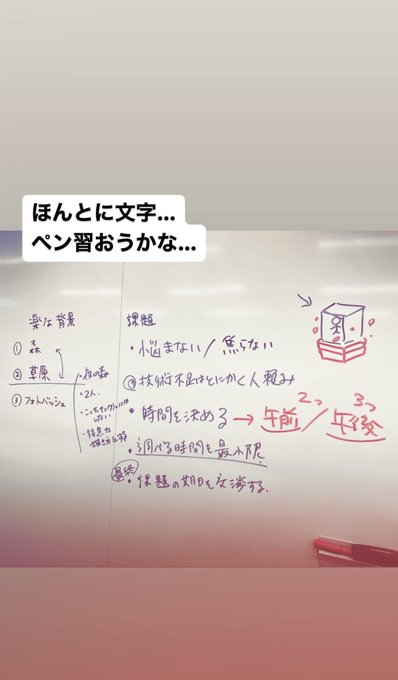 ほんとに文字...
ペン習おうかな...
楽な背景
① 森
② 草原
③ フォトバッシュ
・夜の森
・2人
課題
・悩まない/焦らない
技術不足はとにかく人頼み
・時間を決める → 午前 2つ / 午後 3つ
・調べる時間を最小限
最終
・課題の期日を交渉する.